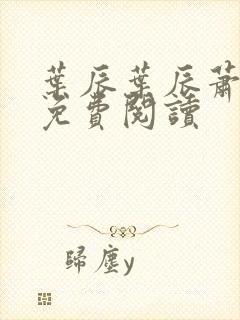 葉辰葉辰蕭
免費閱讀
歸塵y